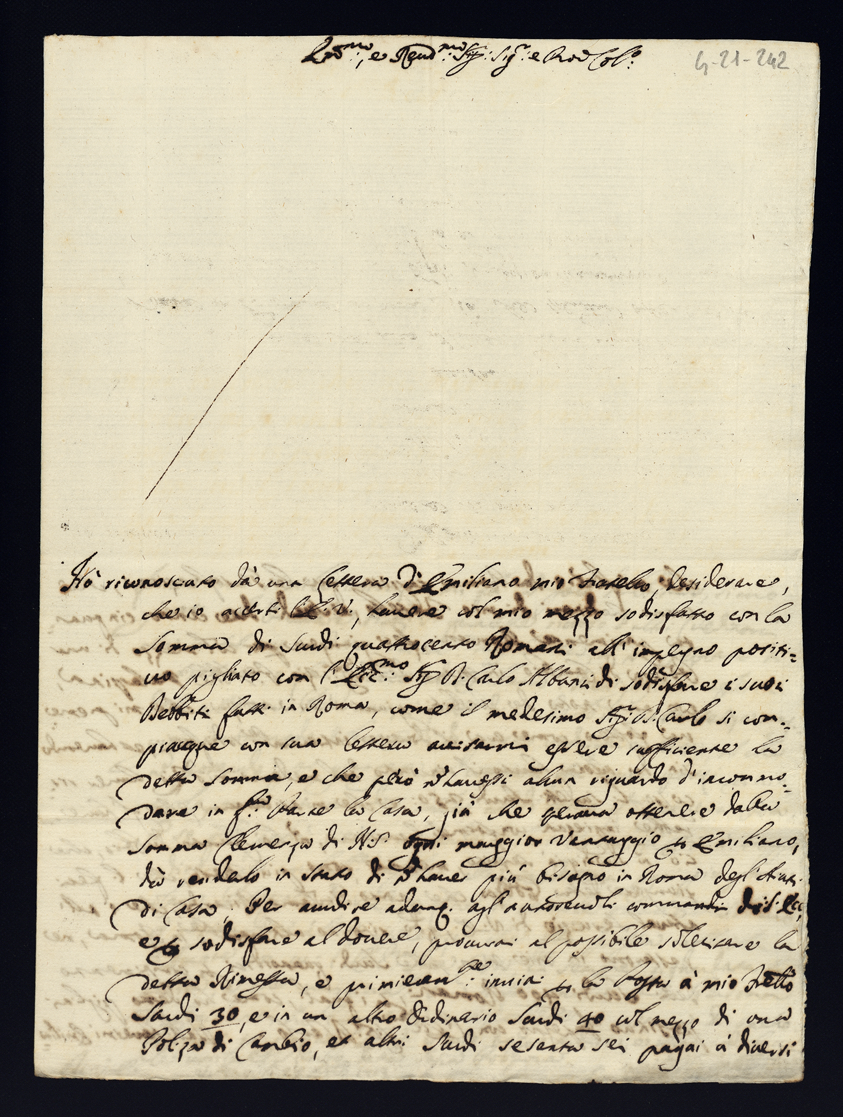 e Rev.mo Sig.r Sig.r e Pron Col.o
G-21-242
Hò riconosciuto dà una lettera di Emiliano mio Fratello, desiderare,
che io accerti V., havere col mio mezzo sodisfatto con la
somma di Scudi quattrocento Romani all'impegno positi=
vo pigliato con l'Ecc.mo Sig.r D. Carlo Albani di sodisfare i suoi
Debbiti fatti in Roma, come il medesimo Sig.r D. Carlo si com=
piacque con sua lettera avisarmi essere sufficiente la
detta somma, e che però n'havessi alcun riguardo d'incommo=
dare in Parte la Casa, già che sperava ottenere dalla
somma Clemenza di N.S. ogni maggior vantaggio p Emiliano,
da renderlo in stato di n'haver più bisogno in Roma degl'aiuti
di Casa. Per aderire adunq. agl'autorevoli commandi di S. Ecc.
e p sodisfare al dovere, procurai al possibile solecitare la
detta Rimessa, e primieram.te inviai p la Posta à mio Fratello
Scudi 30, e in un altro Ordinario Scudi 40 col mezzo di una
Poliza di Cambio, et altri Scudi sesenta sei pagai à diversi